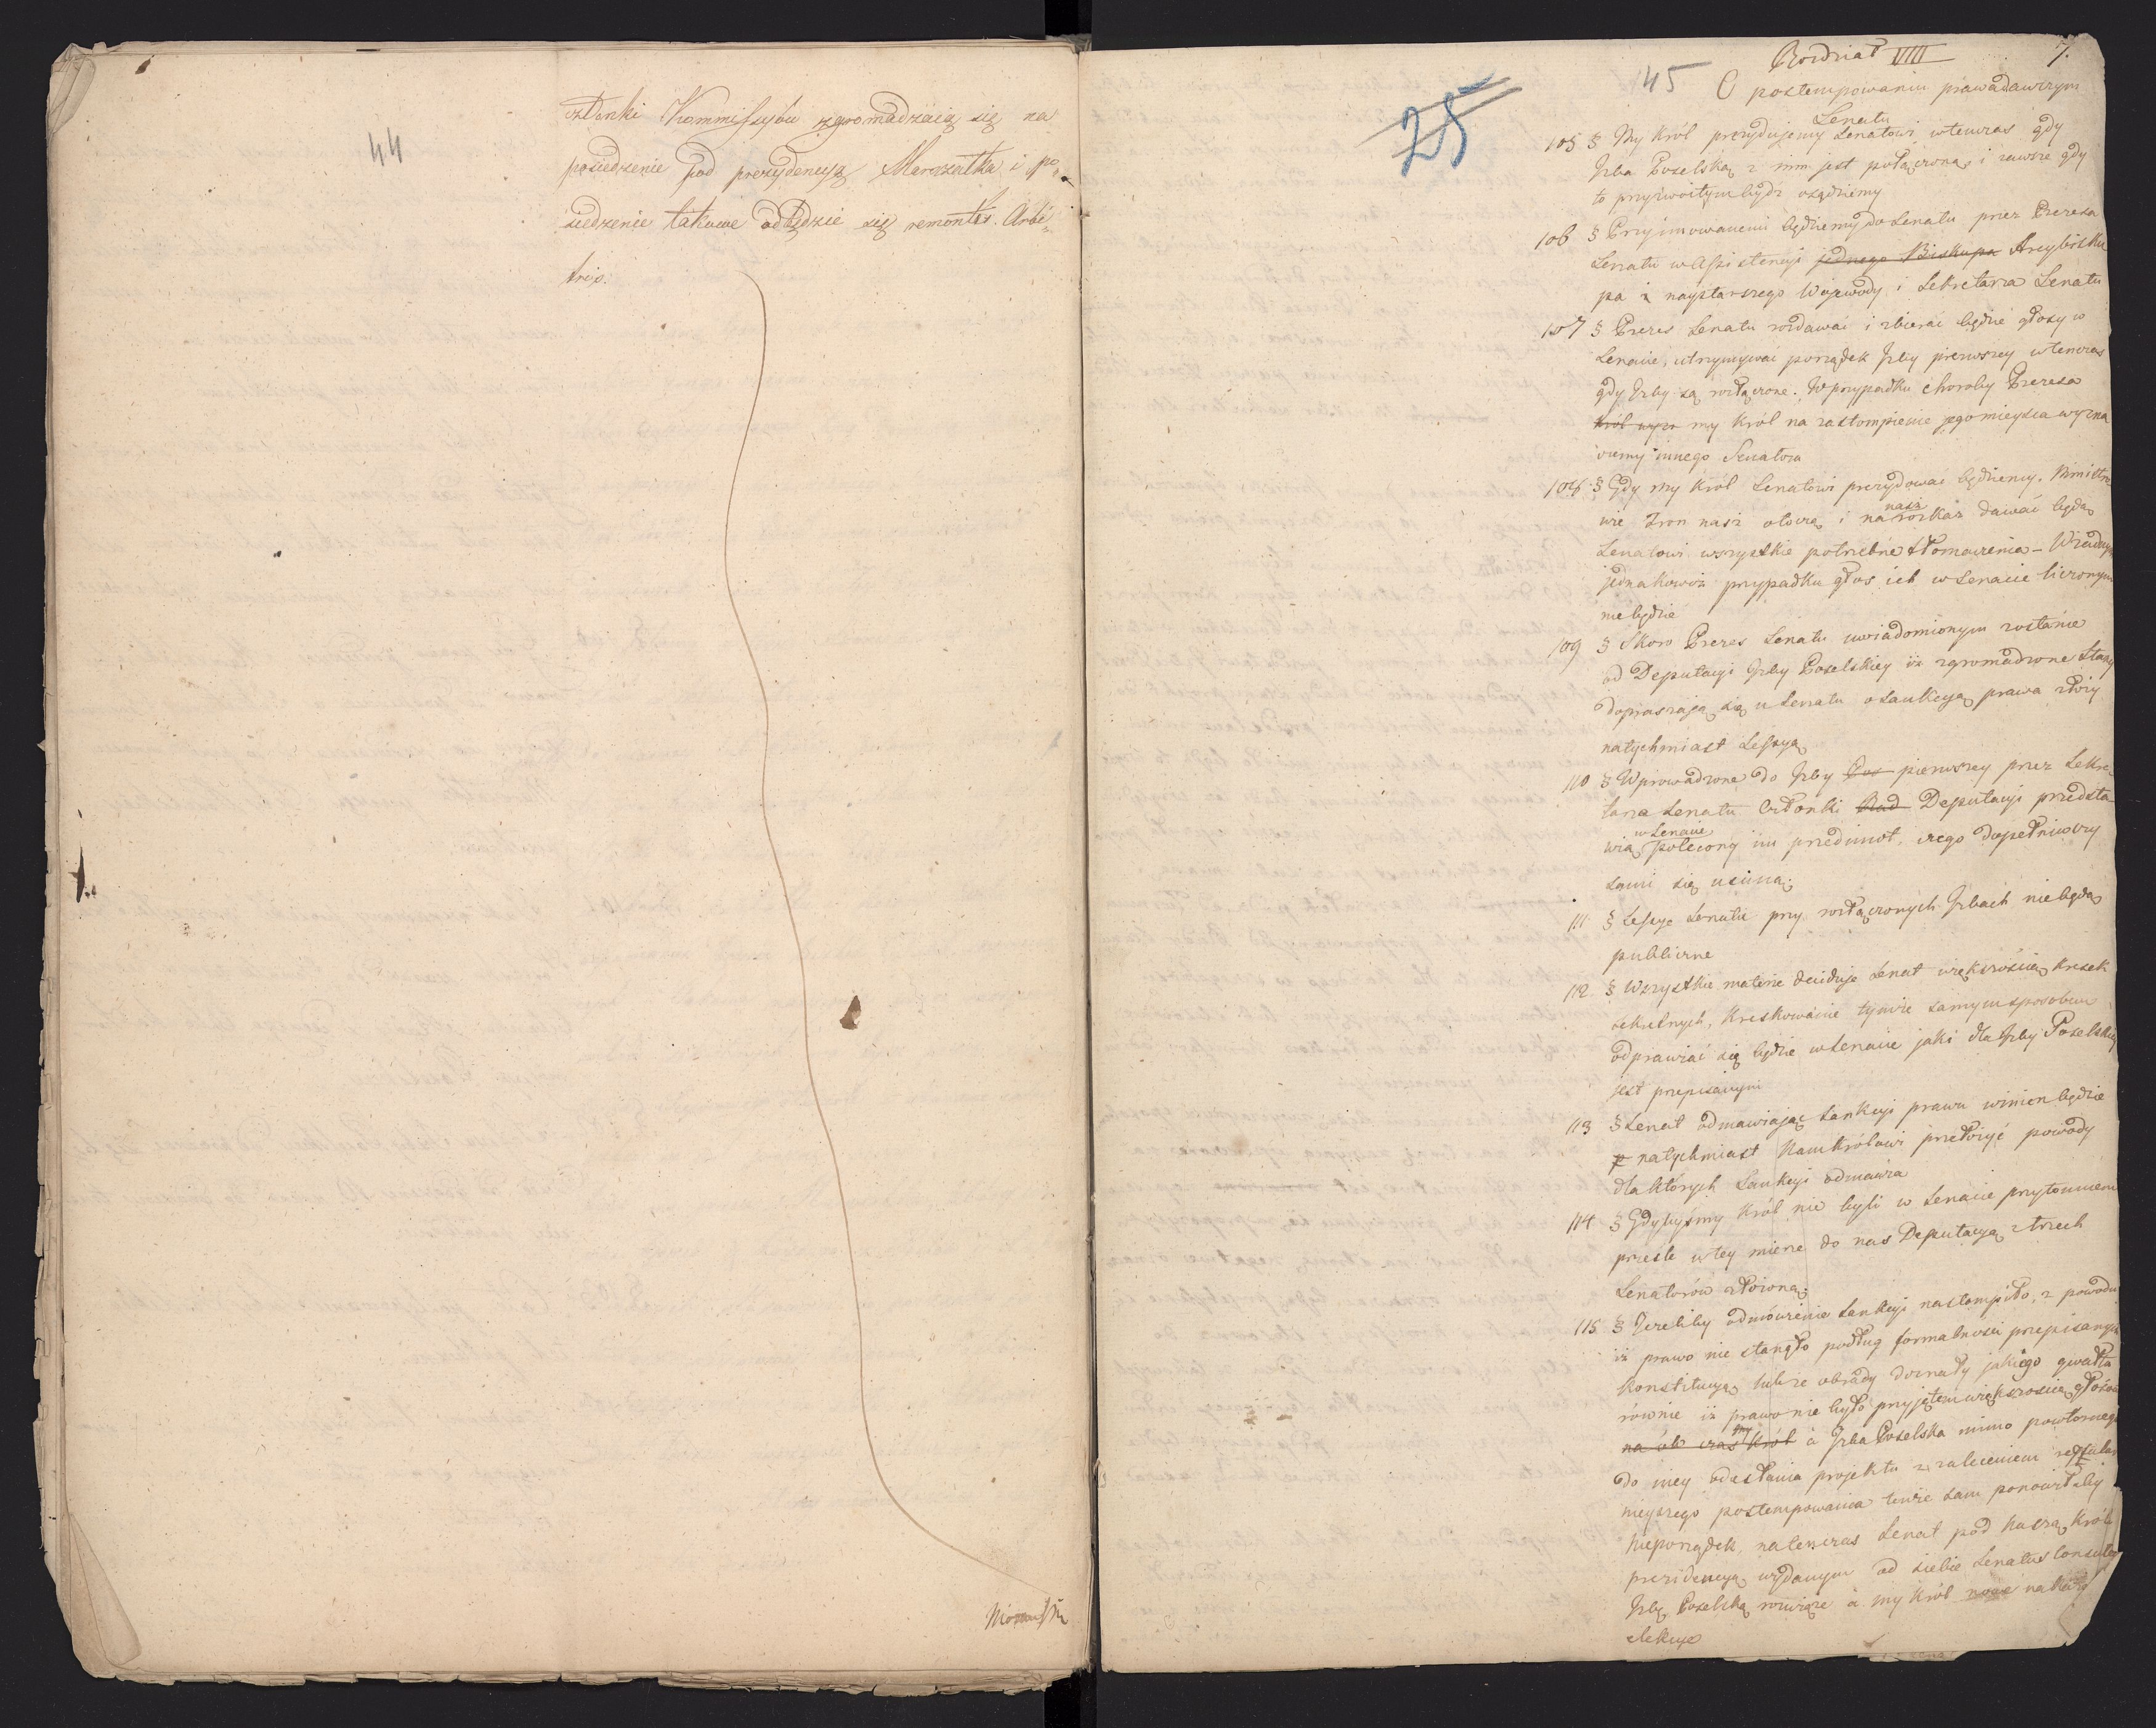 44
członki Kommissyów zgromadzaią się na
posiedzenie pod prezydencyą Marszałka i po„
siedzenie takowe odbędzie się remontis. Arbi„
tris.
25
145
7.
Rozdział VIII
O postempowaniu prawodawczym
Senatu
105 § My Król prezydujemy Senatowi wtenczas gdy
Izba Poselska z nim jest połączona, i zawsze gdy
to przyzwoitym bydz osądziemy
106 § Przyimowanemi będziemy do Senatu przez Prezesa
Senatu w Assistencyi jednego Biskupa Arcybisku
pa i naystarszego Wojewody i Sekretarza Senatu
107 § Prezes Senatu rozdawać i zbierać będzie głosy w
Senacie, utrzymywać porządek Izby pierwszey wtenczas
gdy Izby są rozłączone. W przypadku choroby Prezesa
Król wyzn my Król na zastompienie jego mieysca wyzna
czemy innego Senatora
108 § Gdy my Król Senatowi prezydować będziemy. Ministro
wie Tron nasz otoczą i na nasz rozkaz dawać będą
Senatowi wszystkie potrzebne tłomaczenia – W żadnym
jednakowoż przypadku głos ich w Senacie liczonym
nie będzie
109 § Skoro Prezes Senatu uwiadomionym zostanie
od Deputacyi Izby Poselskiey iż zgromadzone Stany
dopraszają się u Senatu o Sankcyą prawa złoży
natychmiast Sessyą
110 § Wprowadzone do Izby Pos pierwszey przez Sekre„
tarza Senatu Członki Rad Deputacyi przedsta
wią w Senacie polecony im przedmiot, czego dopełniwszy
sami się usuną.
111 § Sessye Senatu przy rozłączonych Izbach nie będą
publiczne
112 § Wszystkie materie deciduje Senat większością kresek
sekretnych, Kreskowanie tymże samym sposobem
odprawiać się będzie w Senacie jaki dla Izby Poselskiey
jest przepisanym
113 § Senat odmawiając Sankcyi prawu winien będzie
p natychmiast Nam Królowi przełożyć powody
dla których Sankcyi odmawia
114 § Gdybyśmy Król nie byli w Senacie przytomnemi
prześle w tey mierze do nas Deputacyą z trzech
Senatorów złożoną.
115 § Jeżeliby odmówienie Sankcyi nastompiło, z powodu
iż prawo nie stanęło podług formalności przepisanych
Konstytucyą lub że obrady doznały jakiego gwałtu
równie iż prawo nie było przyjętem większością głosów
na ów czas my Król a Izba Poselska mimo powtornego
do niey odesłania projektu z zaleceniem regular
nieyszego postempowania tenże sam ponowiłaby
nieporządek, natenczas Senat pod naszą Król
prezidencyą wydanym od siebie Senatus Consultem
Izbę Poselską rozwiąże a my Król nowe nakażem
elekcye